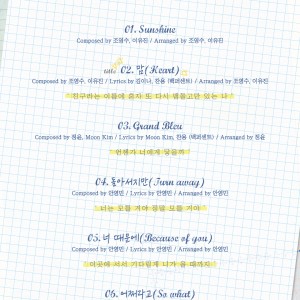 01. Sunshine
Composed by 조영수, 이유진 / Arranged by 조영수, 이유진
title 02. 맘(Heart)
Composed by 조영수, 이유진 / Lyrics by 김이나, 찬용 (백퍼센트) / Arranged by 조영수, 이유진
친구라는 이름에 혼자 또 다시 맴돌고만 있는 나
03. Grand Bleu
Composed by 정윤, Moon Kim / Lyrics by Moon Kim, 찬용 (백퍼센트) / Arranged by 정윤
언젠가 너에게 닿을까
04. 돌아서지만(Turn away)
Composed by 안영민 / Lyrics by 안영민 / Arranged by 안영민
너는 모를 거야 정말 모를 거야
05. 너 때문에(Because of you)
Composed by 안영민 / Lyrics by 안영민 / Arranged by 안영민
이곳에 서서 기다릴게 니가 올 때까지
06. 어쩌라고(So what)